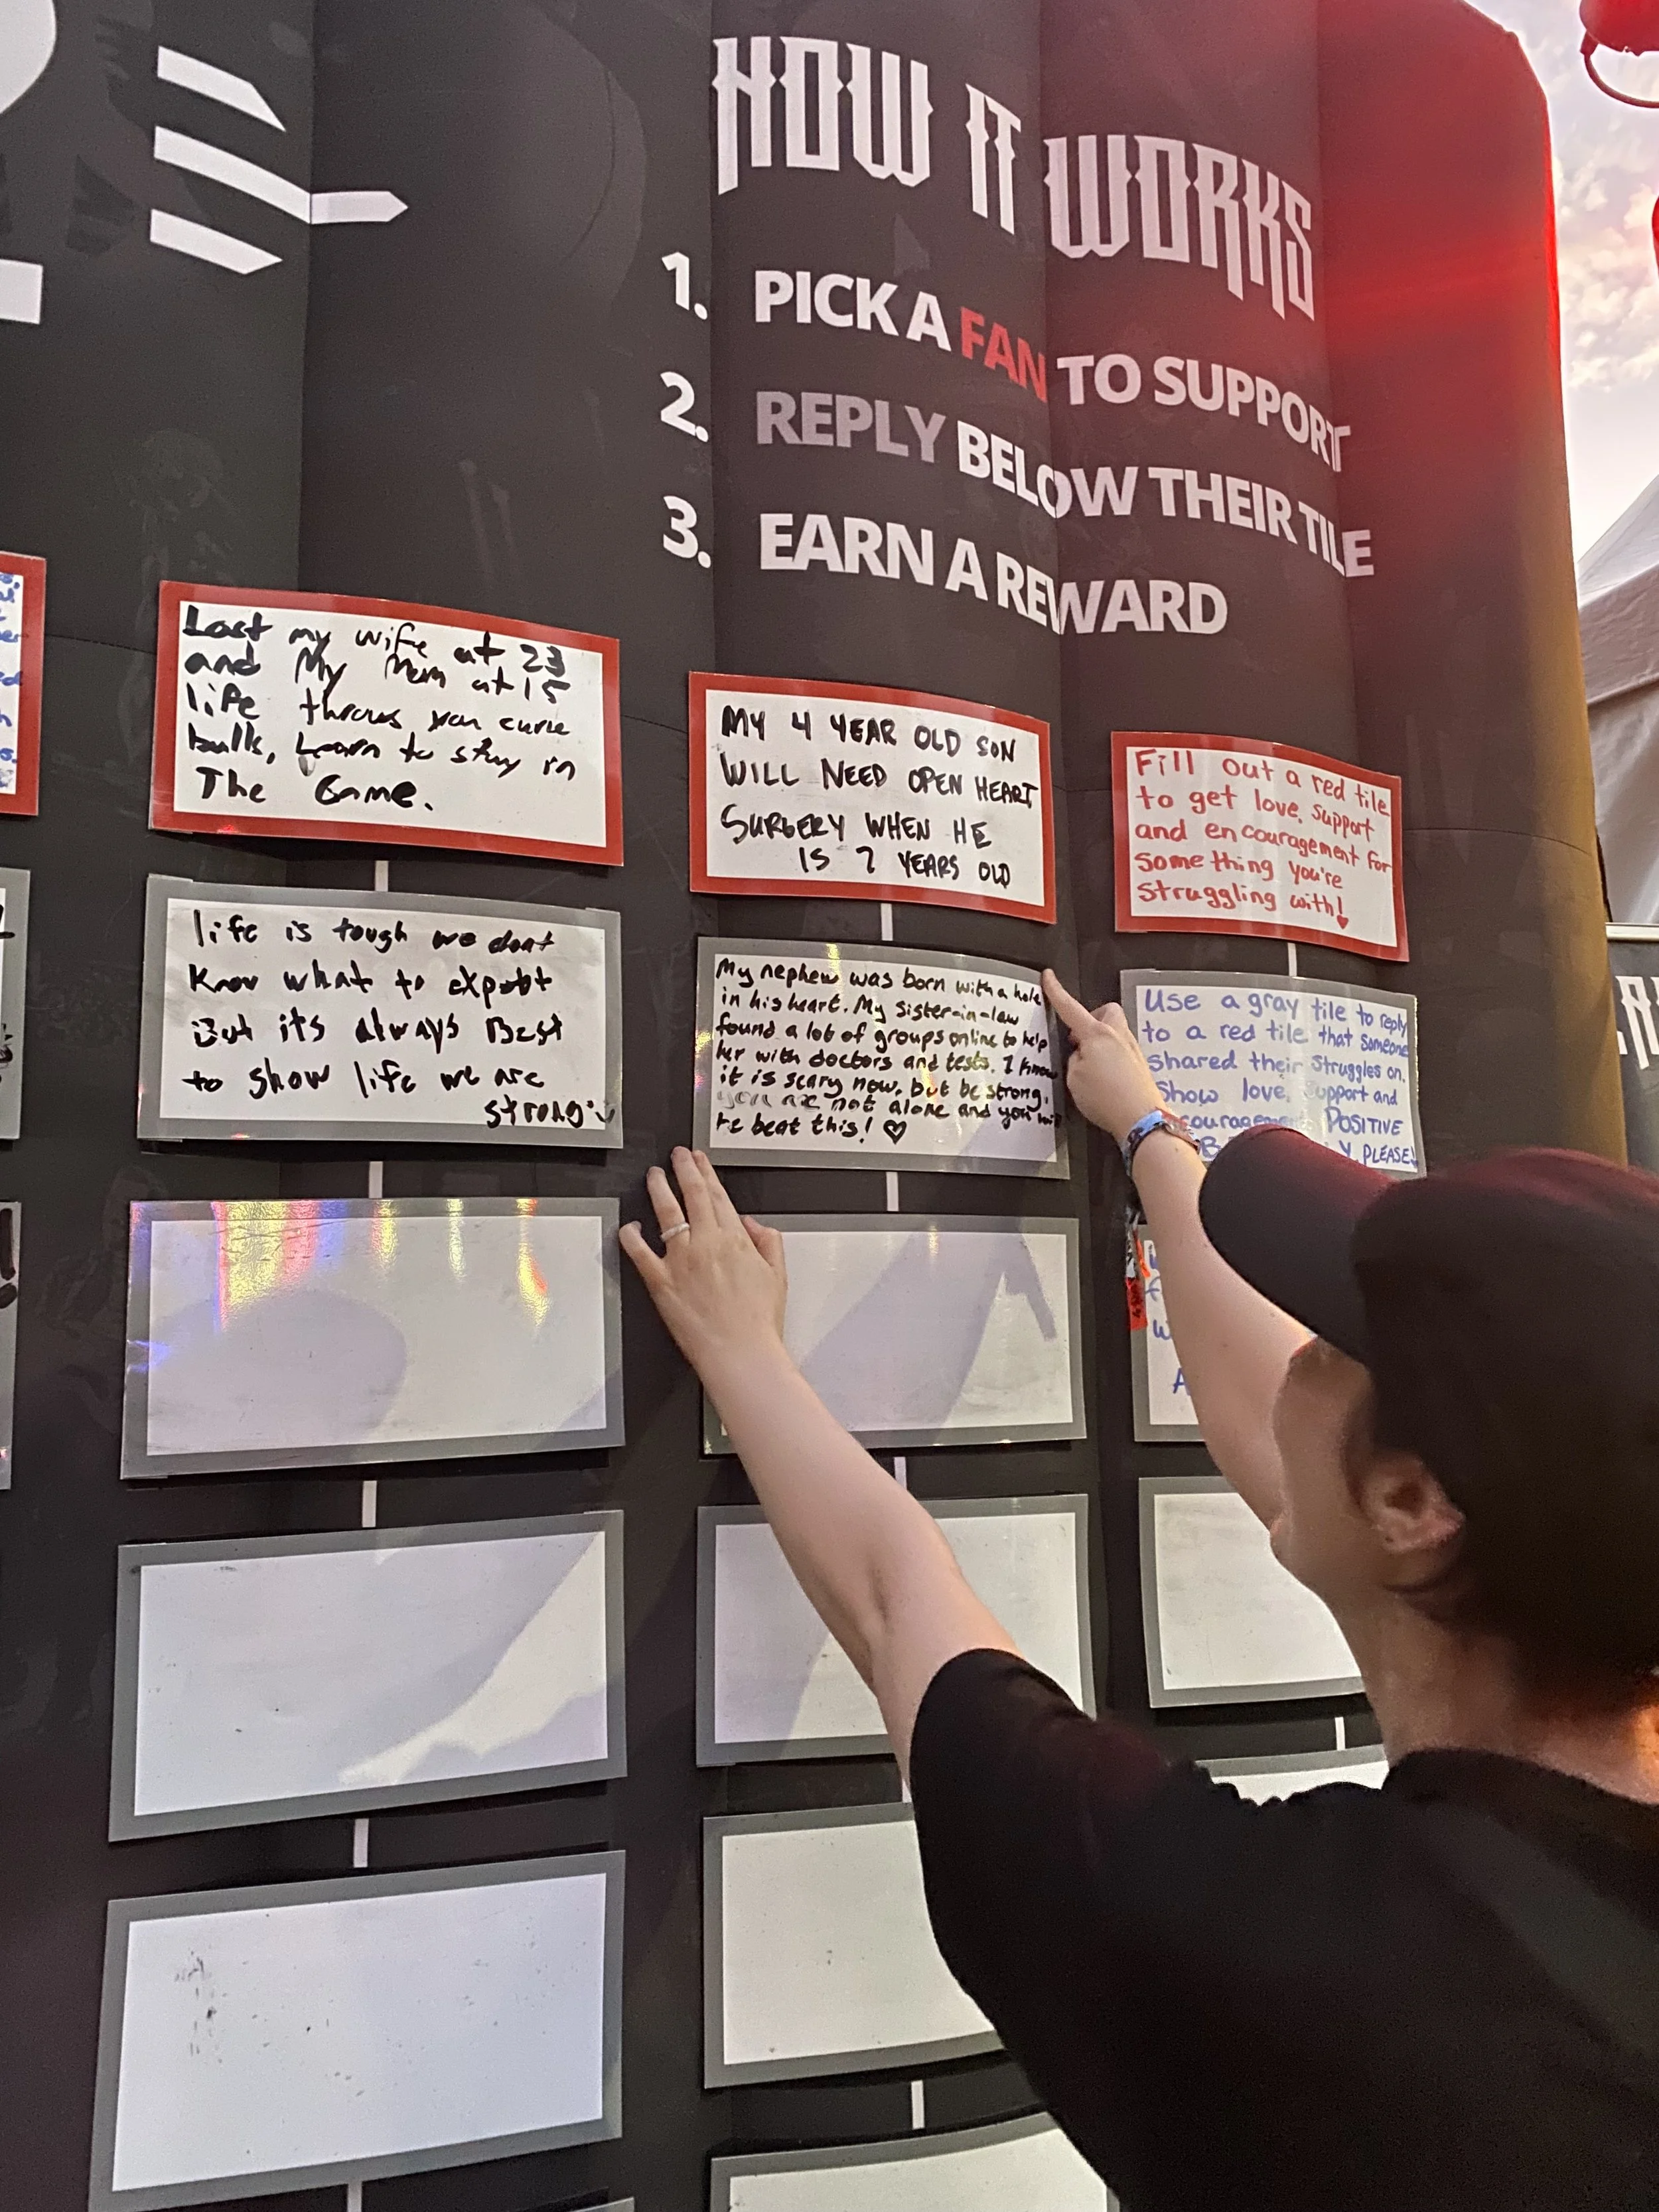 HOW IT WORKS
1. PICK A FAN TO SUPPORT
2. REPLY BELOW THEIR TILE
3. EARN A REWARD
Lost my wife at 23
and My Mom at 15
life throws you curve
balls, Learn to stay in
The Game.
life is tough we dont
Know what to
But its always Best
to show life we are
strong
MY 4 YEAR OLD SON
WILL NEED OPEN HEART
SURGERY WHEN HE
IS 7 YEARS OLD
My nephew was born with a hole
in his heart. My sister-in-law
found a lot of groups online to help
her with doctors and tests. I know
it is scary now, but be strong.
you are not alone and you
beat this! ♡
Fill out a red tile
to get love, support
and encouragement for
something you're
struggling with!
Use a gray tile to reply
to a red tile that someone
shared their struggles on.
Show love, support and
POSITIVE
PLEASE!